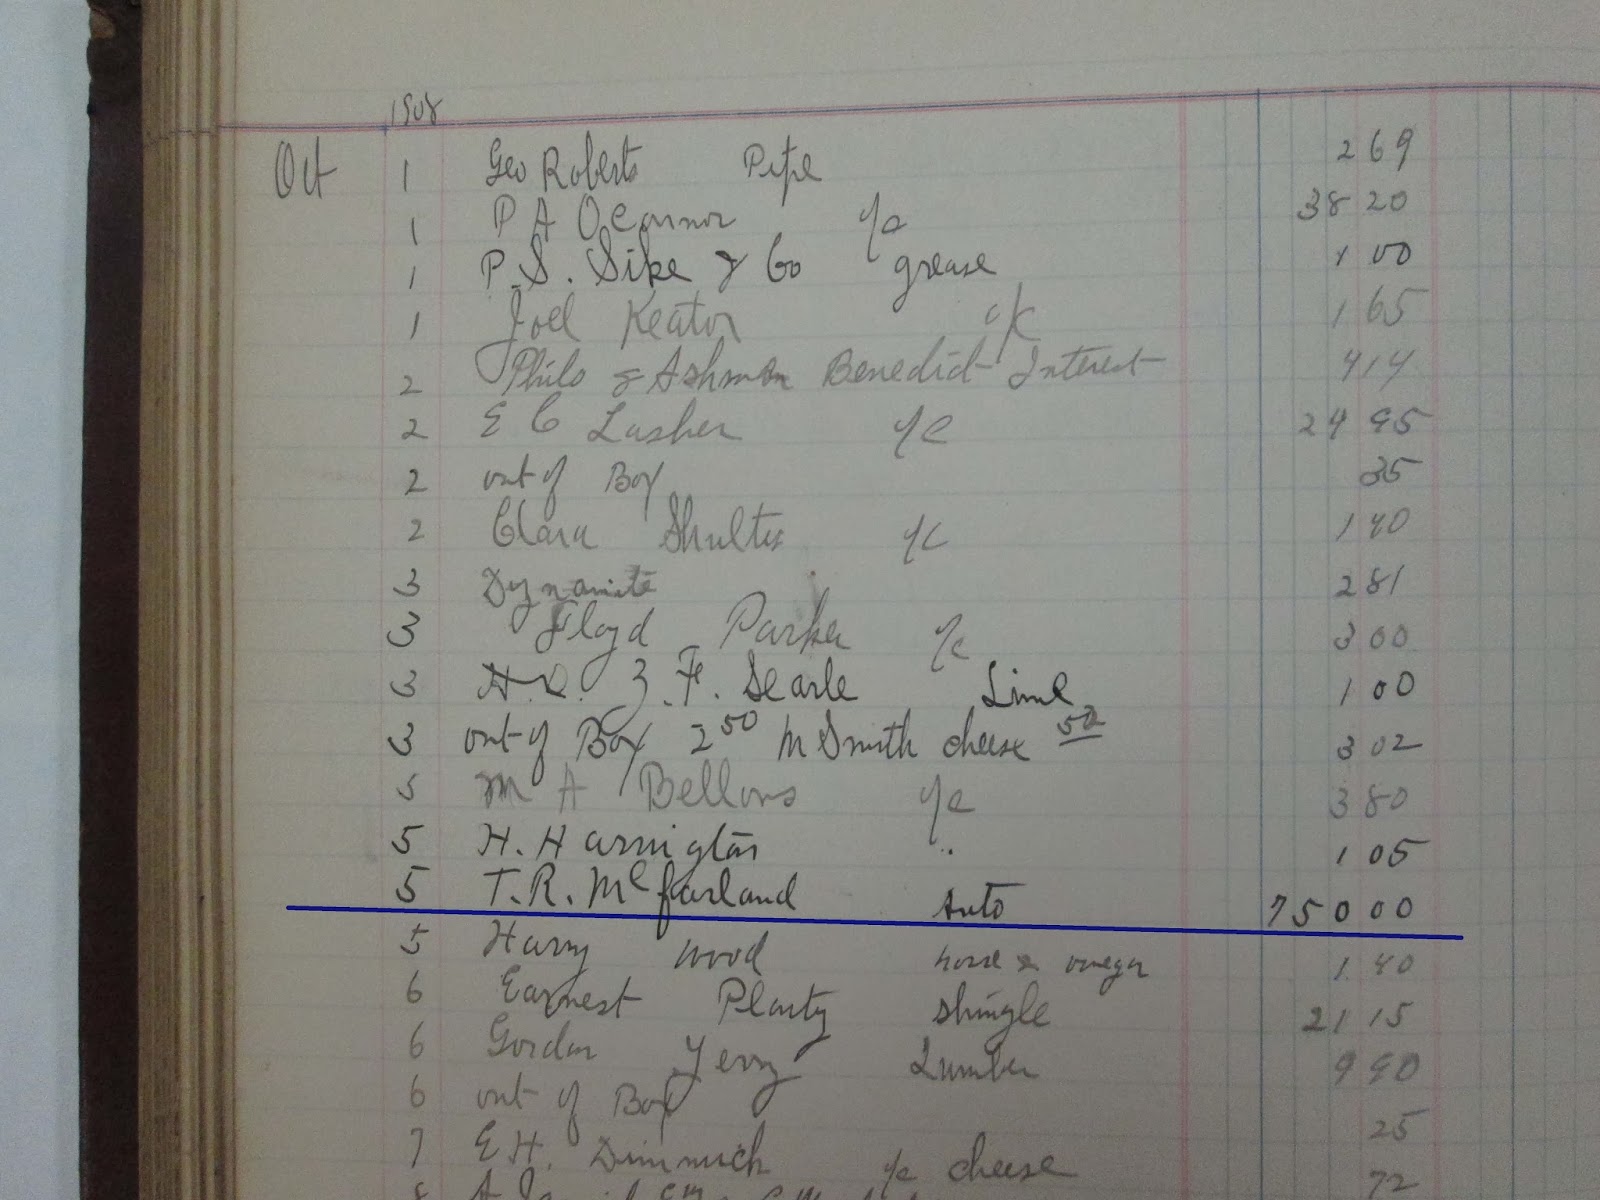 1908
Oct 1 Geo Roberts Pipe 2 69
1 P A OConnor a/c 38 20
1 P. S. Sike & Co grease 1 00
1 Joel Keator a/c 1 65
2 Philo & Ashman Benedict Interest 4 14
2 E C Lasher a/c 24 95
2 out of Box 35
2 Clara Shultis a/c 1 40
3 Dynamite 2 81
3 Floyd Parker a/c 3 00
3 F. Searle Lime 1 00
3 out of Box 2 50 M Smith cheese 52 3 02
5 M A Bellows a/c 3 80
5 H. Harrington " 1 05
5 T. R. McFarland Auto 750 00
5 Harry Wood & vinegar 1 40
6 Earnest Plarty shingle 21 15
6 Gordon Terry Lumber 9 90
6 out of Box 25
7 E H. Dimmick a/c cheese 72
8